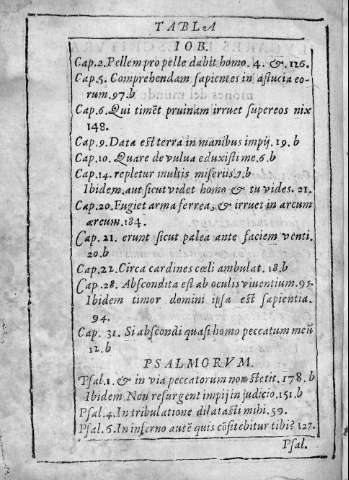 TABLA
IOB.
Cap.2. Pellem pro pelle dabit homo. 4. & .126.
Cap.5. Comprehendam sapientes in astucia eo-
rum. 97.b
Cap.6. Qui timẽt pruinam irruet super eos nix
148.
Cap.9. Data est terra in manibus impij. 19. b
Cap.10. Quare de vulua eduxisti me. 6.b
Cap.14. repletur multis miseriis.7.b
Ibidem. aut sicut videt homo & tu vides. 21.
Cap.20. Fugiet arma ferrea, & irruet in arcum
æreum. 184.
Cap. 21. erunt sicut palea ante faciem venti.
20.b
Cap.22. Circa cardines cœli ambulat. 18.b
Cap.28. Abscondita est ab oculis viuentium. 95.
Ibidem timor domini ipsa est sapientia.
94.
Cap. 31. Si abscondi quasi homo peccatum meũ
12.b
PSALMORVM.
Psal.1. & in via peccatorum non stetit. 178.b
Ibidem. Non resurgent impij in judicio. 151.b
Psal.4. In tribulatione dilatasti mihi. 59.
Psal.6. In inferno autẽ quis cõfitebitur tibi? 127.
Psal.